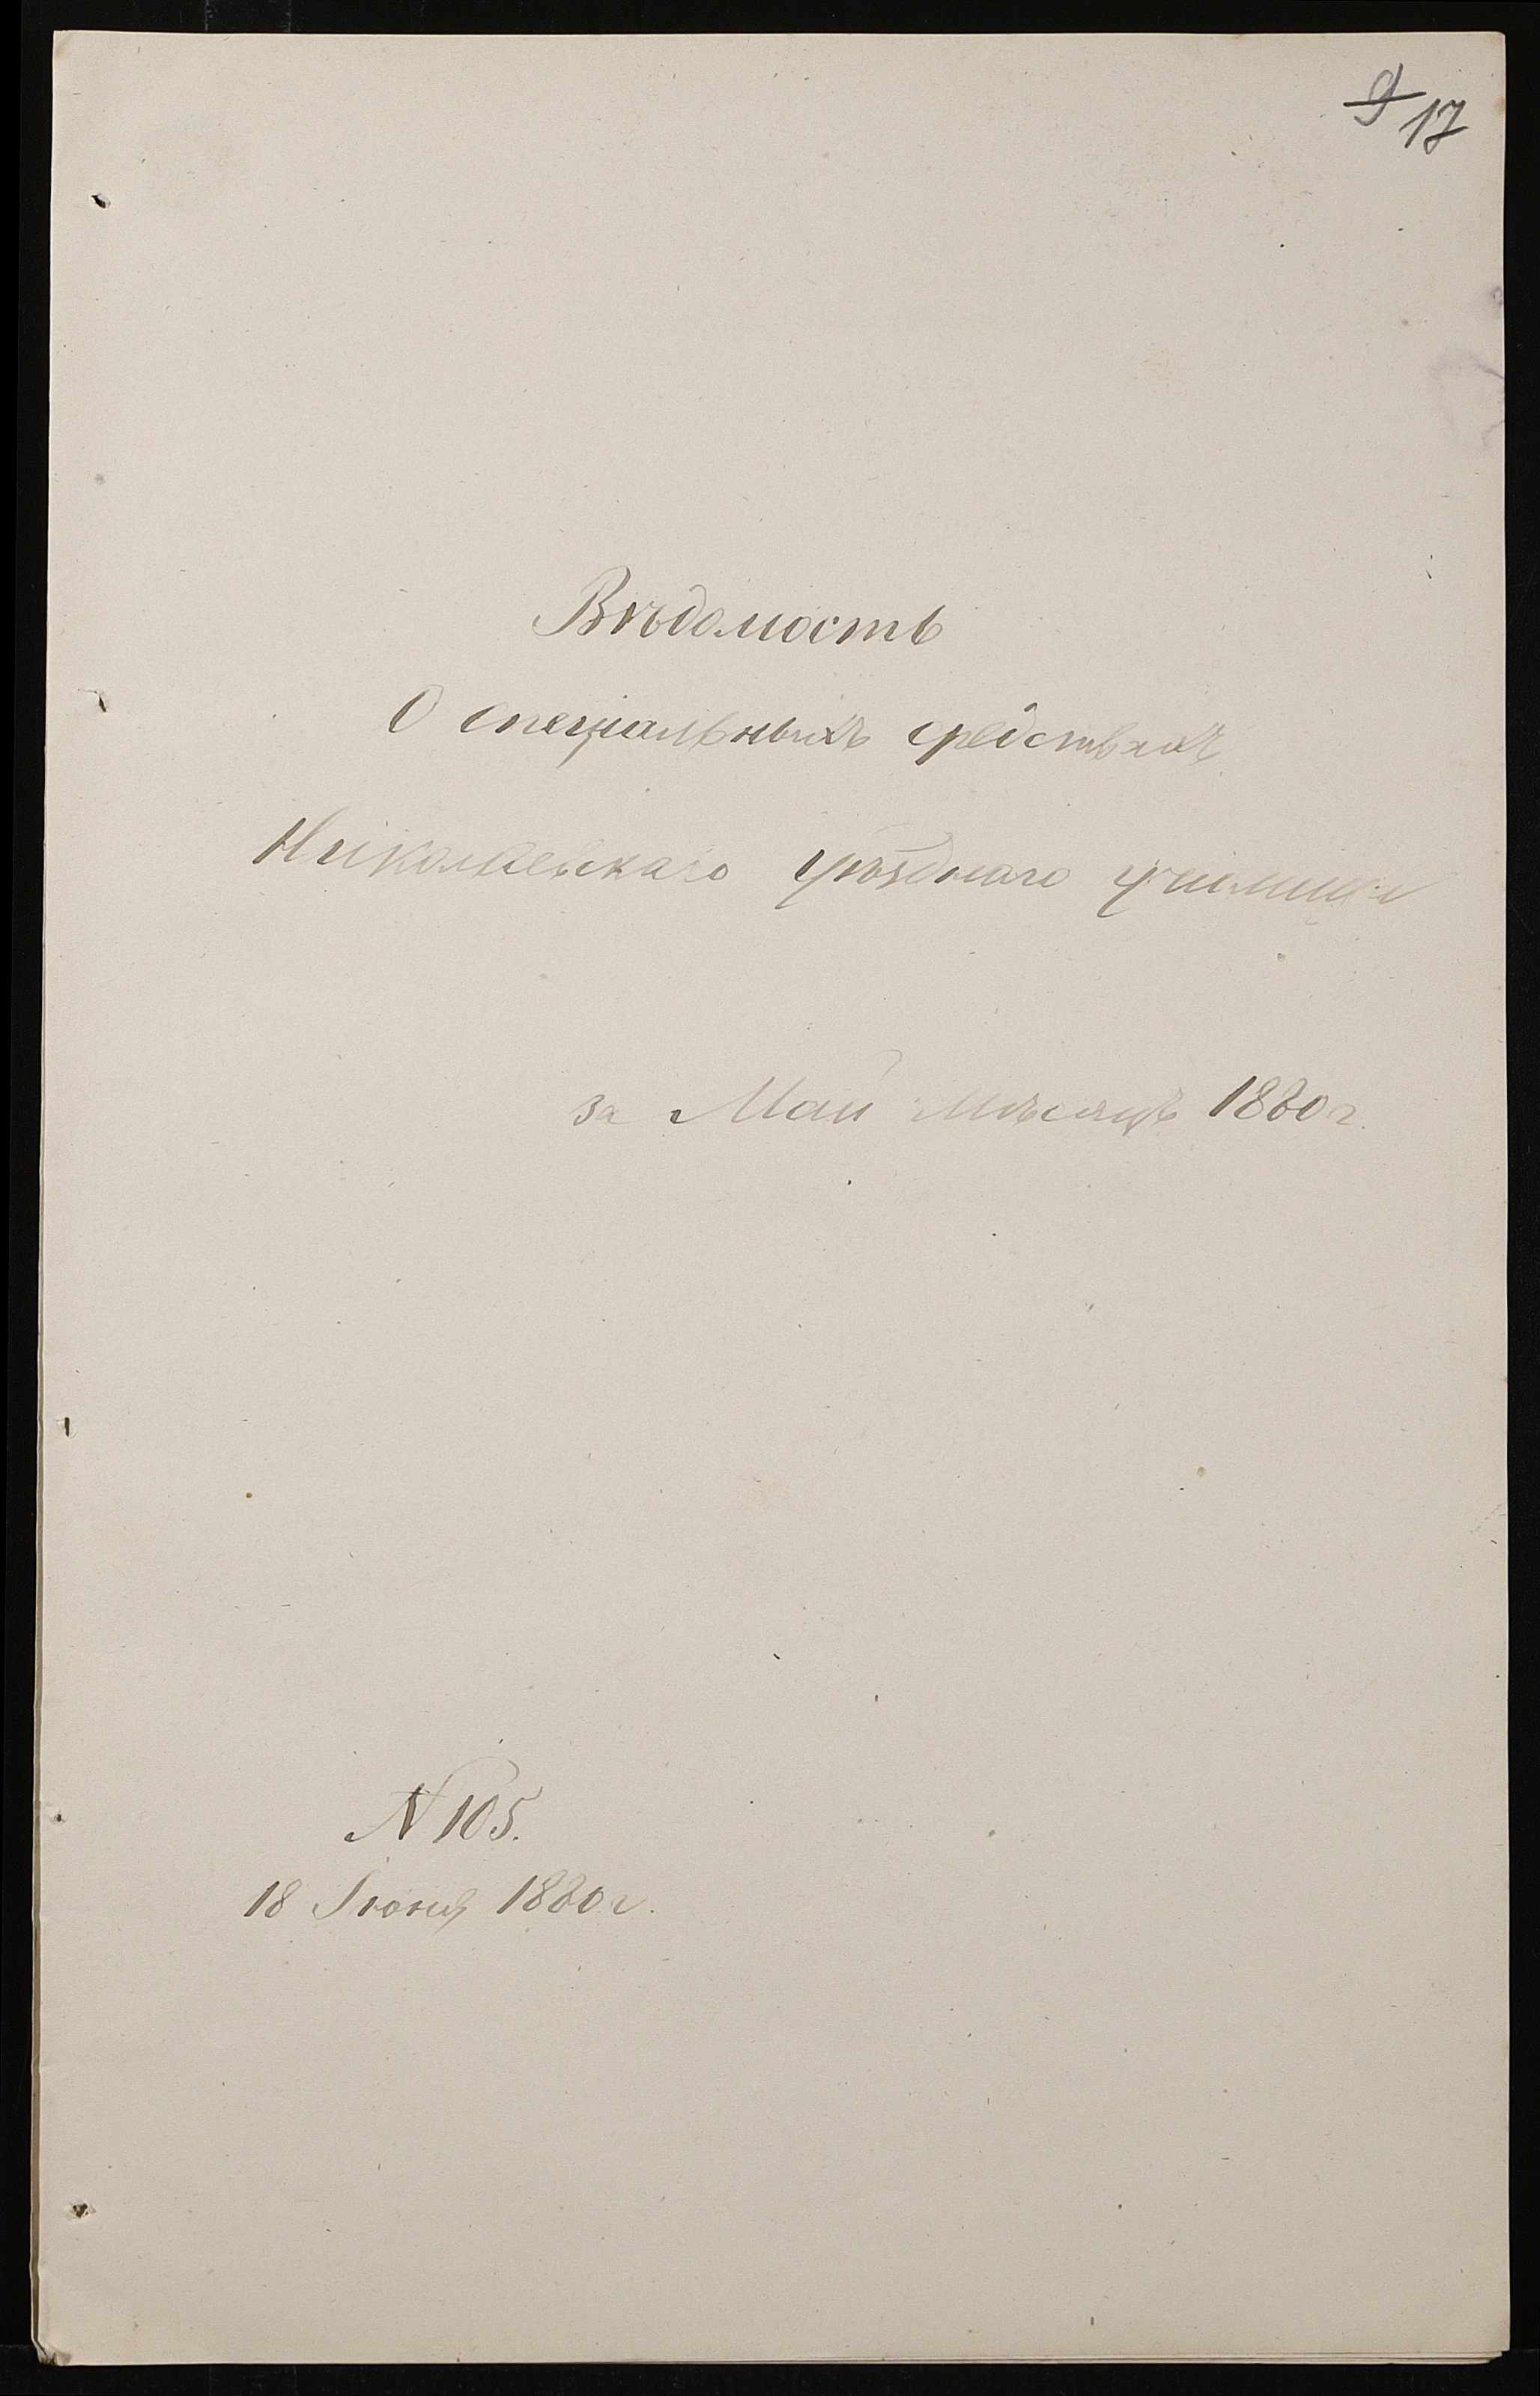 9 17
Вѣдомость
О спеціальныхъ средствахъ
Николаевскаго уѣзднаго училища
за Май мѣсяцъ 1880 г.
N 105.
18 Іюня 1880 г.